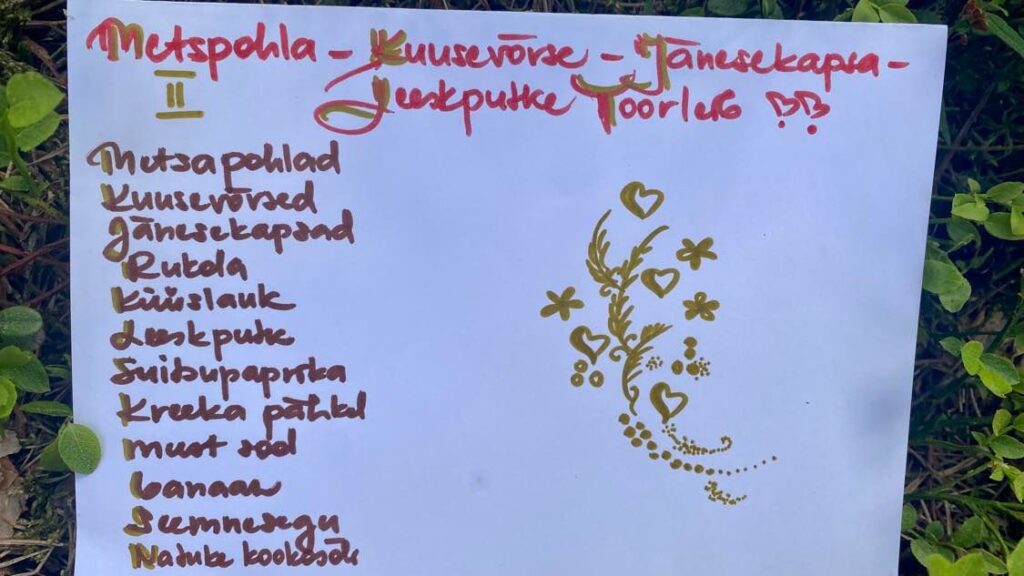 Metspohla - Kuusevõrse - Jänesekapsa -
II Leeskputke Toorleib BB
Metsapohlad
Kuusevõrsed
Jänesekapsad
Rukola
Küüslauk
Leeskputk
Suitsupaprika
Kreeka pähkel
must sool
banaan
Seemnesegu
Natuke kookosõli